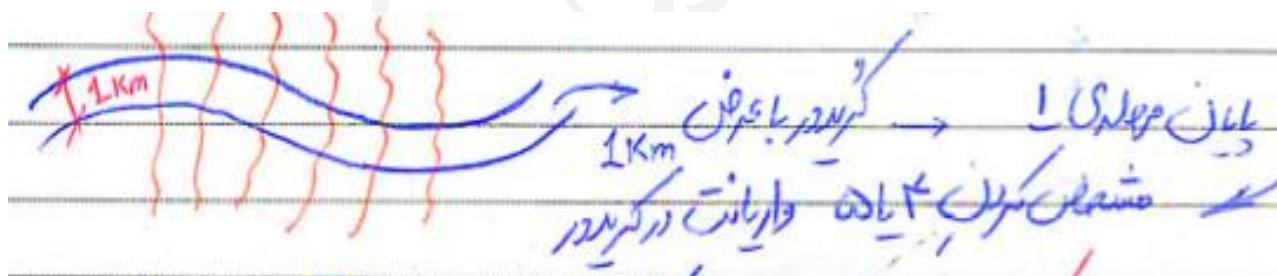 پایان مرحله‌ی 1 → کُریدور با عرض 1Km
مشخص کردن ۴ یا ۵ واریانت در کریدور
1Km